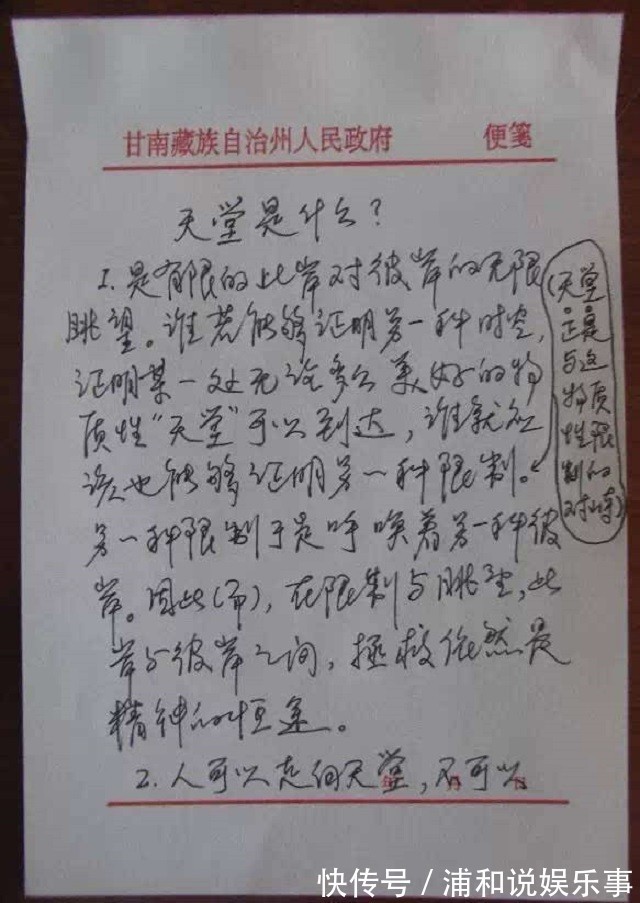 甘南藏族自治州人民政府 便笺
天堂是什么？
1.是有限的此岸对彼岸的无限
眺望。谁若能够证明另一种时空，
证明某一处无论多么美好的物
质性“天堂”可以到达，谁就应
该也能够证明另一种限制。
另一种限制于是呼唤着另一种彼
岸。因此(而)，在限制与眺望、此
岸与彼岸之间，拯救依然是
精神的恒途。
2.人可以走向天堂，不可以
(天堂
正是
与这
物质
性限
制的
对峙)
快传号/浦和说娱乐事